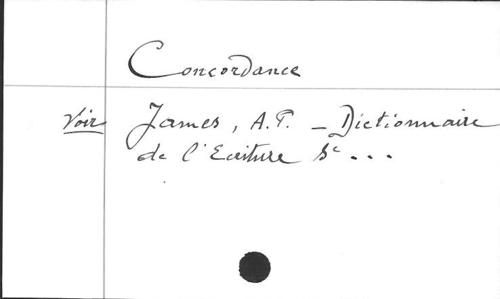 Concordance
Voir James, A.T. - Dictionnaire
de l'Ecriture Sᵉ ...